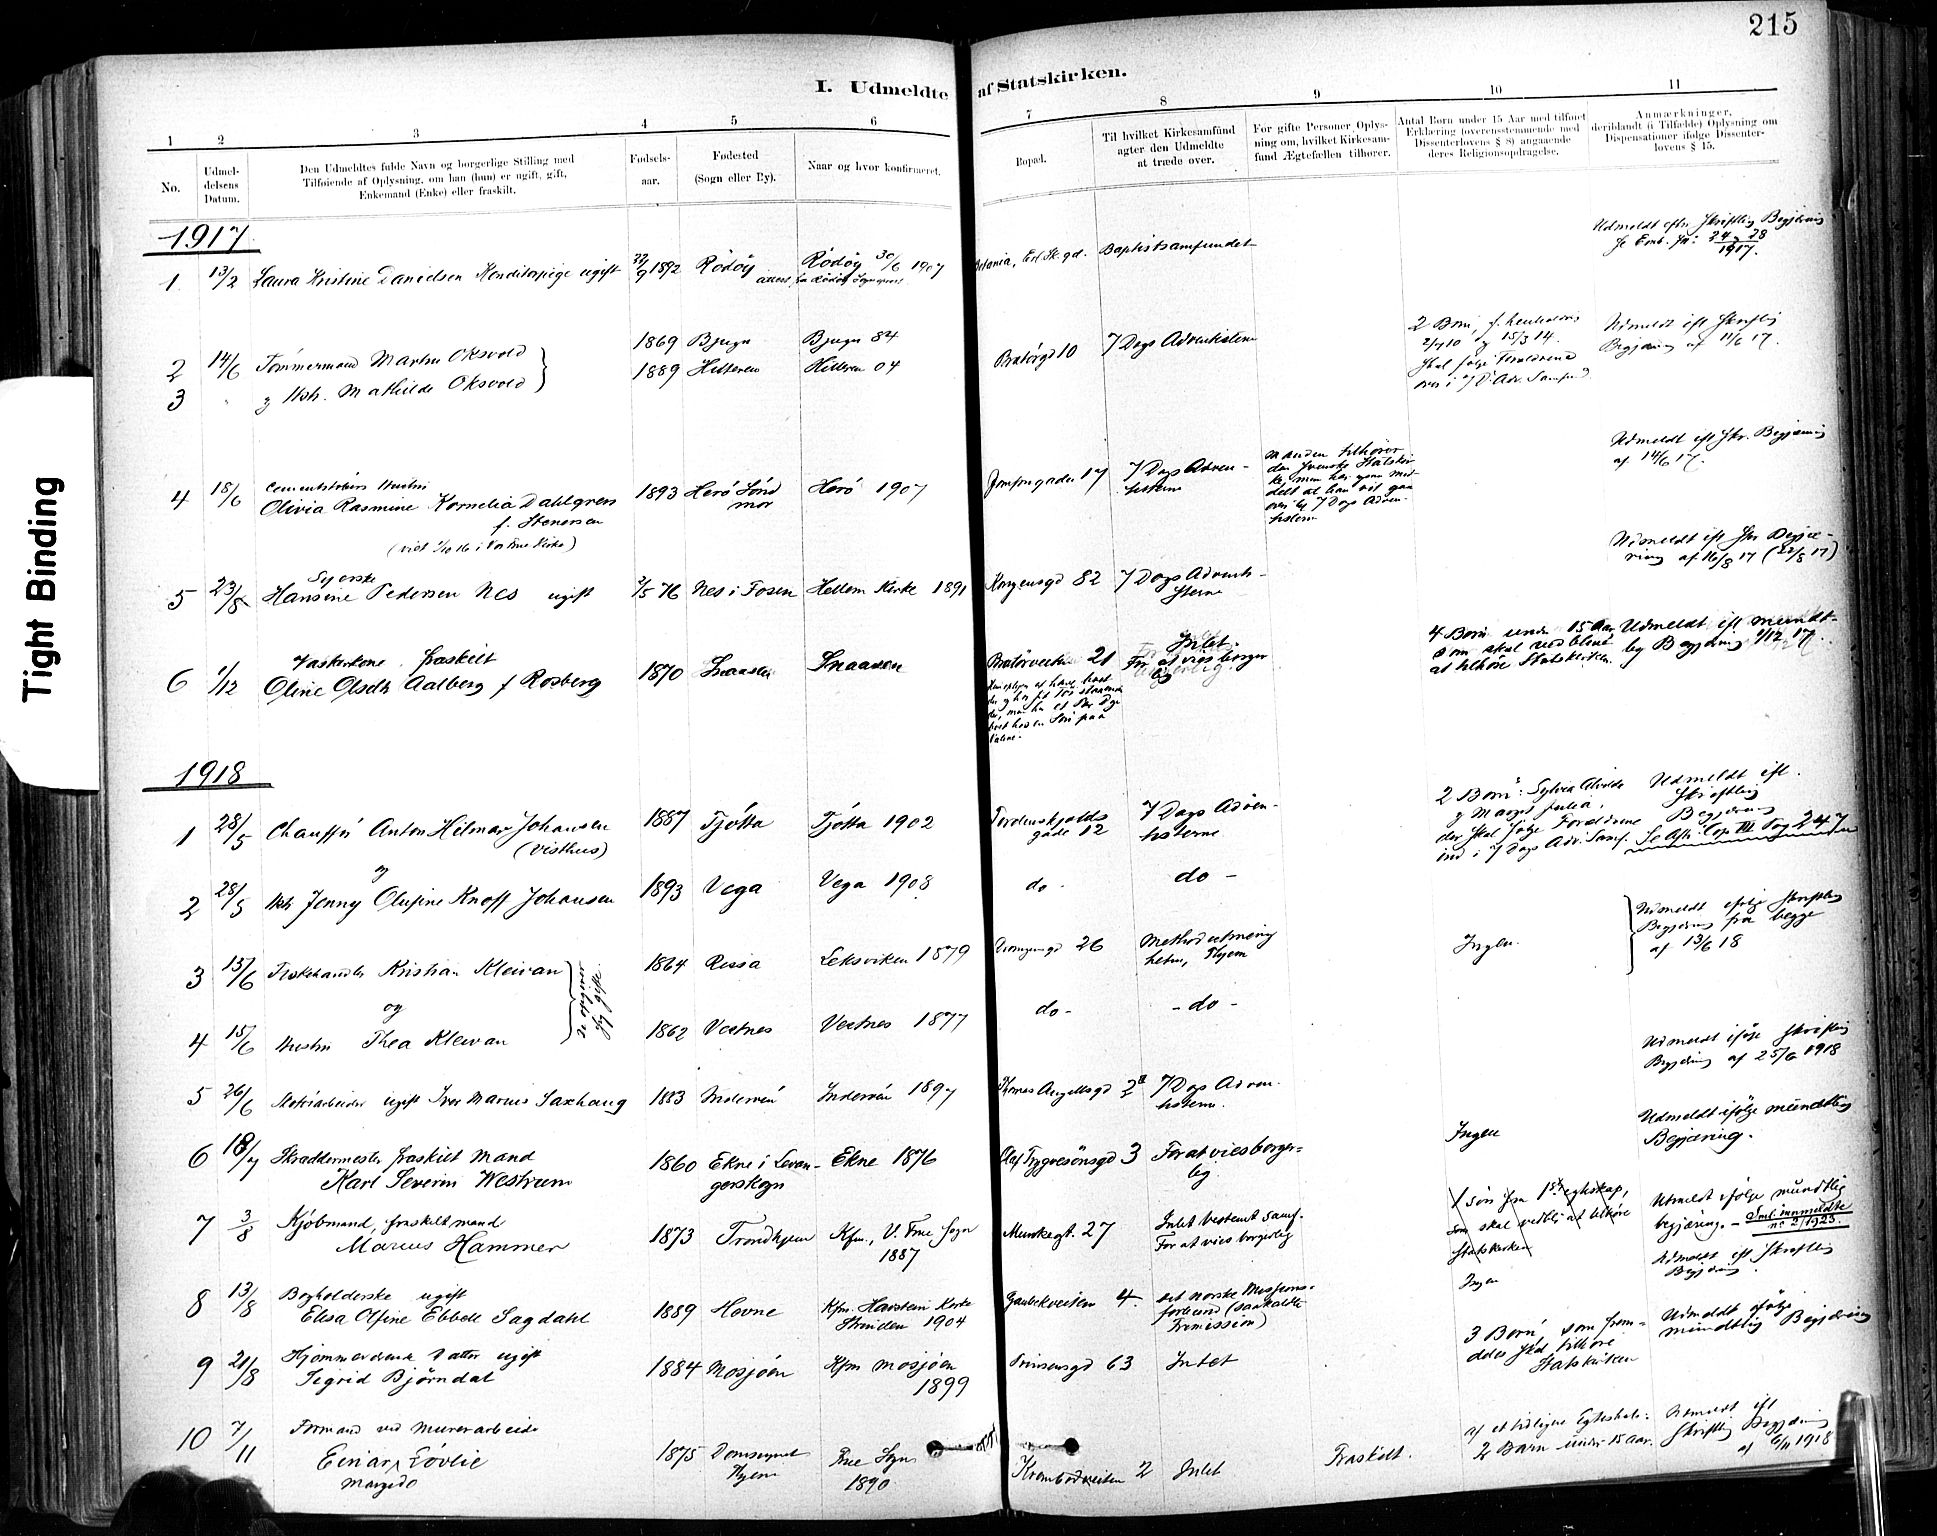 215
I. Udmeldte af Statskirken.
1 2 3 4 5 6 7 8 9 10 11
No.
Udmel-
delsens
Datum.
Den Udmeldtes fulde Navn og borgerlige Stilling med
Tilføiende af Oplysning, om han (hun) er ugift, gift,
Enkemand (Enke) eller fraskilt.
Fødsels-
aar.
Fødested
(Sogn eller By).
Naar og hvor konfirmeret.
Bopæl.
Til hvilket Kirkesamfund
agter den Udmeldte
at træde over.
For gifte Personer Oplys-
ning om, hvilket Kirkesam-
fund Ægtefællen tilhører.
Antal Børn under 15 Aar med tilføiet
Erklæring (overensstemmende med
Dissenterlovens § 8) angaaende
deres Religionsopdragelse.
Anmærkninger,
deriblandt (i Tilfælde) Oplysning om
Dispensationer ifølge Dissenter-
lovens § 15.
1917
1 13/2 Laura Kristine Danielsen ugift 22/9 1892 Rödöy Rödöy 30/6 1907 Baptistsamfundet
Udmeldt eftr. Skriftlig Begjæring
1917.
2 14/6 Tömmermand Martin Oksvold 1869 Bjugn Bjugn 84 Bratörgd 10 7 Dags Adventisterne
3 " og Hstr. Mathilde Oksvold 1889 Hitteren Hitteren 04
2 Börn, f. henholdsvis
2/7 10 og 15/3 14.
skal følge Forældrene
over i 7 D. Adv. Samfund.
Udmeldt eft Skriftlig
Begjæring af 11/6 17.
4 18/6 Olivia Rasmine Kornelia Dahlgren
f. Stenersen
(viet 1/10 16 i Vor Frue Kirke)
1893 Herö Sönd
mör Herö 1907 Jomfrugaden 17 7 Dags Adven-
tisterne
Manden tilhörer
den svenske Statskir
ke, men har
over til 7 Dags Adven-
tisterne
Udmeldt eft Skr. Begjæring
af 14/6 17.
5 23/8 Syerske
Hansine Pedersen Nes ugift 2/5 76 Nes i Fosen Hellem Kirke 1891 Kongensgd 82 7 Dags Adventi-
sterne
Udmeldt eft Skr Begjæ-
ring af 16/8 17 (22/8 17)
6 1/12 Vaskerkone, fraskilt
Oline Aalberg f Rosberg 1870 Snaasen Snaasen Bratörveiten 21
Intet.
For at vies borger
lig
4 Börn under 15 Aar
som skal vedblive
at tilhöre Statskirken.
Udmeldt eft mundt-
lig Begjæring 1/12 17.
1918
1 28/5 Chaufför Anton Hilmar Johansen
(Visthus)
1887 Tjötta Tjötta 1902 Tordenskjolds
gade 12 7 Dags Adven-
tisterne
2 Börn: Sylvia
og Margit Julia,
der skal følge Forældrene
ind i 7 Dags Adv. Samf.
Udmeldt eft.
Skriftlig
Begjæring
Se Afl. Cop III Pag 247
og
2 28/5 Hstr Jenny Olufine Knoff Johansen 1893 Vega Vega 1908 do - do -
3 13/6 Fiskehandler Kristian Kleivan 1864 Rissa Leksviken 1879 26 Methodistmenig
heten, Thjem Ingen.
Udmeldt ifølge Skriftlig
Begjæring fra begge
af 13/6 18
og
4 15/6 Hustru Thea Kleivan
De opgiver
sig gifte.
1862 Vestnes Vestnes 1877 do - - do -
5 26/6 ugift Iver Marius Saxhaug 1883 Inderöen Inderöen 1897 Thomas Angellsgd 2 7 Dags Adven-
tisterne.
Udmeldt ifølge Skriftlig
Begjæring af 25/6 1918
6 18/7 Skræddermester fraskilt mand
Karl Severin Westrum 1860 Ekne i Levan-
gerskogn Ekne 1876 Olaf Trygvesönsgd 3 For at vies borger-
lig Ingen
Udmeldt ifølge mundtlig
Begjæring.
7 3/8 Kjöbmand, fraskilt mand
Marius Hammer 1873 Trondhjem Kfm., V. Frue Sogn
1887 Munkegt. 27 Intet bestemt samf.
For at vies borgerlig
1 sön fra 1ste egteskap,
som skal vedbli at tilhöre
Statskirken
Utmeldt ifølge mundtlig
begjæring. - Sml. innmeldte
nr. 2/1923.
8 13/8 Bogholderske ugift
Elisa Olfine Ebbell Sagdahl 1889 Hevne Kfm. Havstein Kirke
Strinden 1904 Gaubekveiten 4. det norske Missions-
forbund (saakaldte
Frimission) Ingen
Udmeldt eft Skriftlig
Begjæring.
9 21/8 Datter ugift
Sigrid Björndal 1884 Mosjöen Kfm Mosjöen
1899 Prinsensgd 63 Intet
3 Börn som frem-
deles skal tilhöre
Statskirken
Udmeldt ifølge
mundtlig Begjæring
10 7/11 Formand ved Murerarbeide
Einar Lövlie
1875 Domsognet
Thjem Frue Sogn
1890 Krambodveiten 2 Intet Fraskilt.
af et tidligere Egteskab:
2 Barn under 15 aar.
Utmeldt eft
Skriftlig Begjæring
af 6/11 1918
Tight Binding